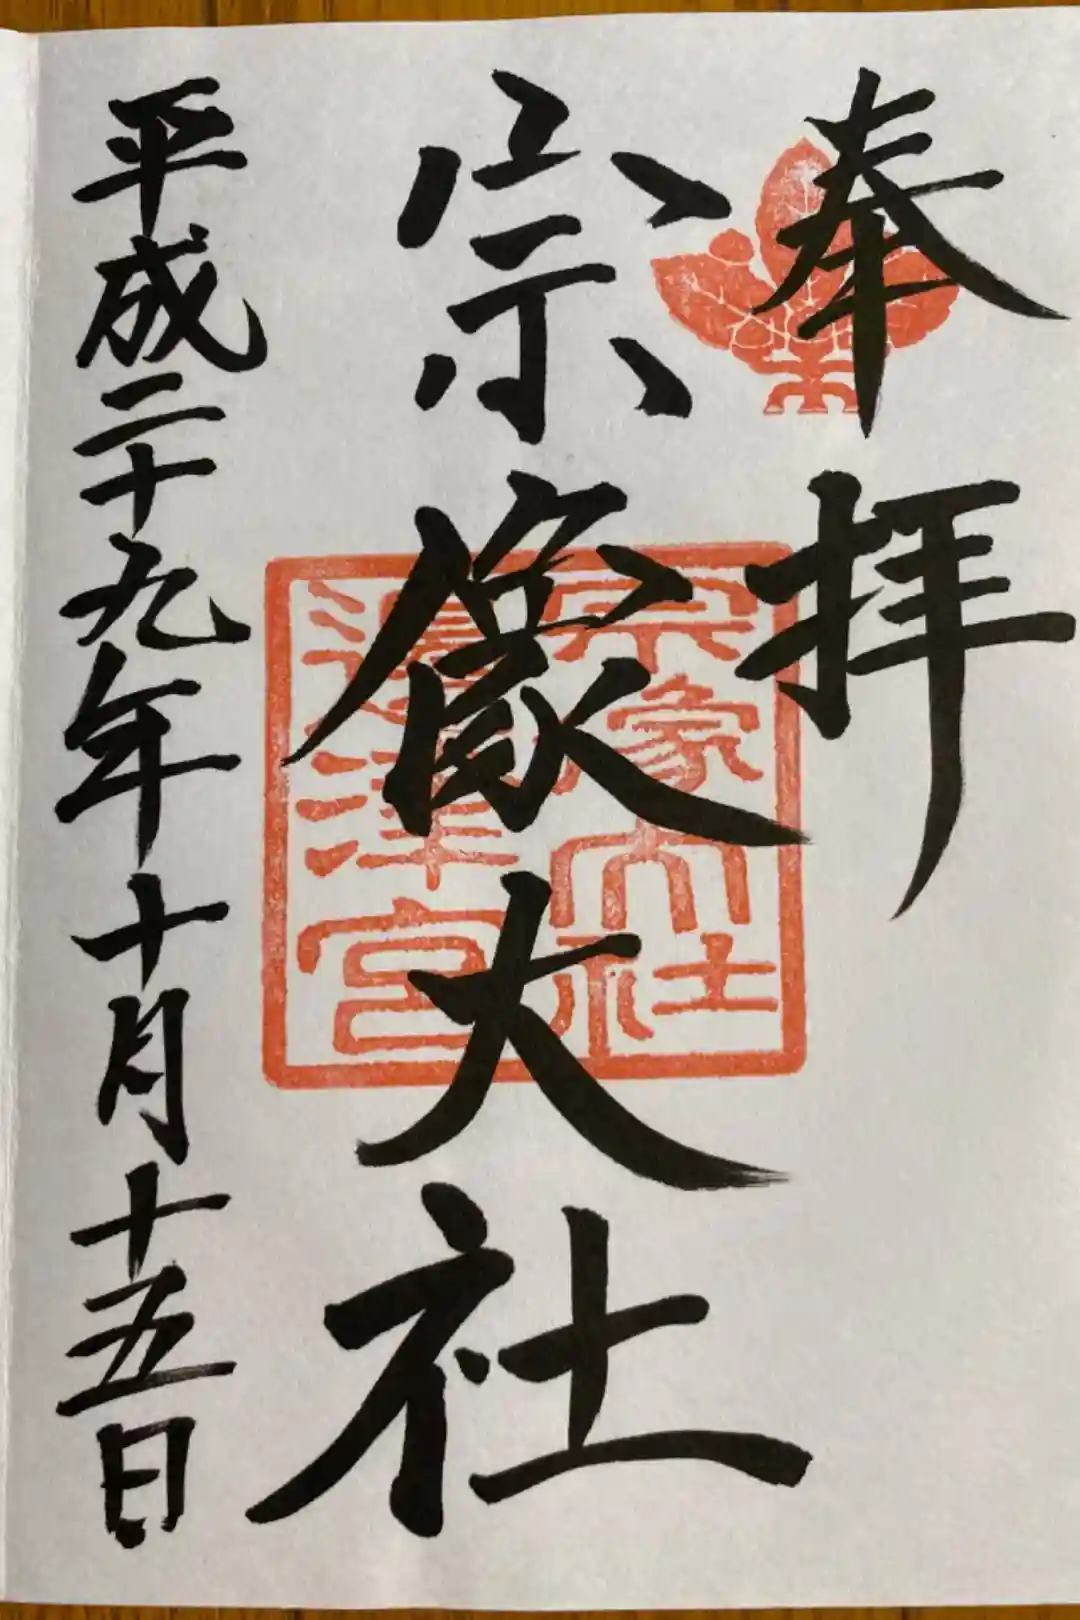 奉拝
宗像大社
宗像大社
邊津宮
平成二十九年十月十五日